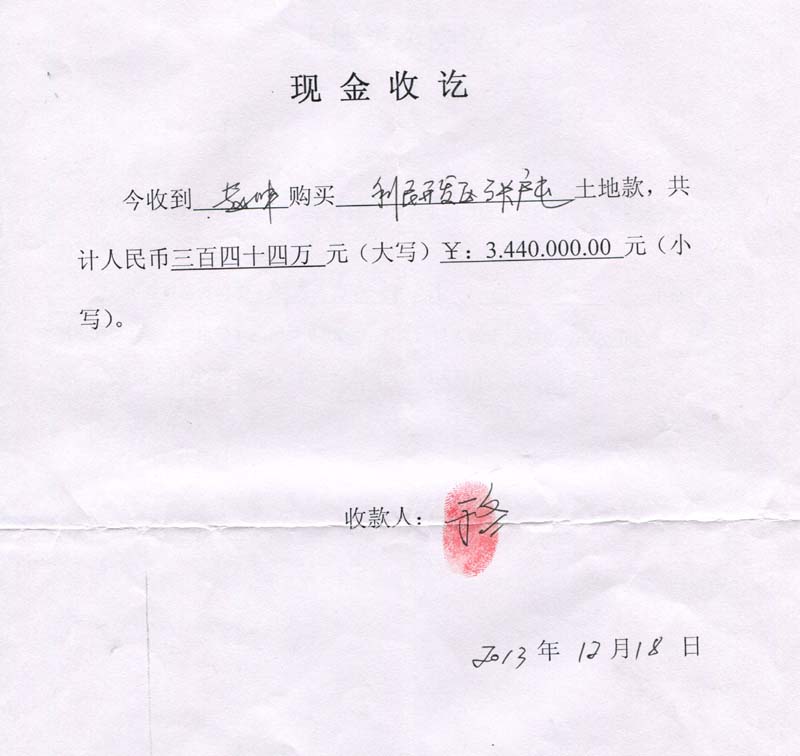 现金收讫
今收到 购买 利民开发区张户屯 土地款，共
计人民币三百四十四万 元（大写）￥：3.440.000.00 元（小
写）。
收款人：
2013 年 12 月 18 日